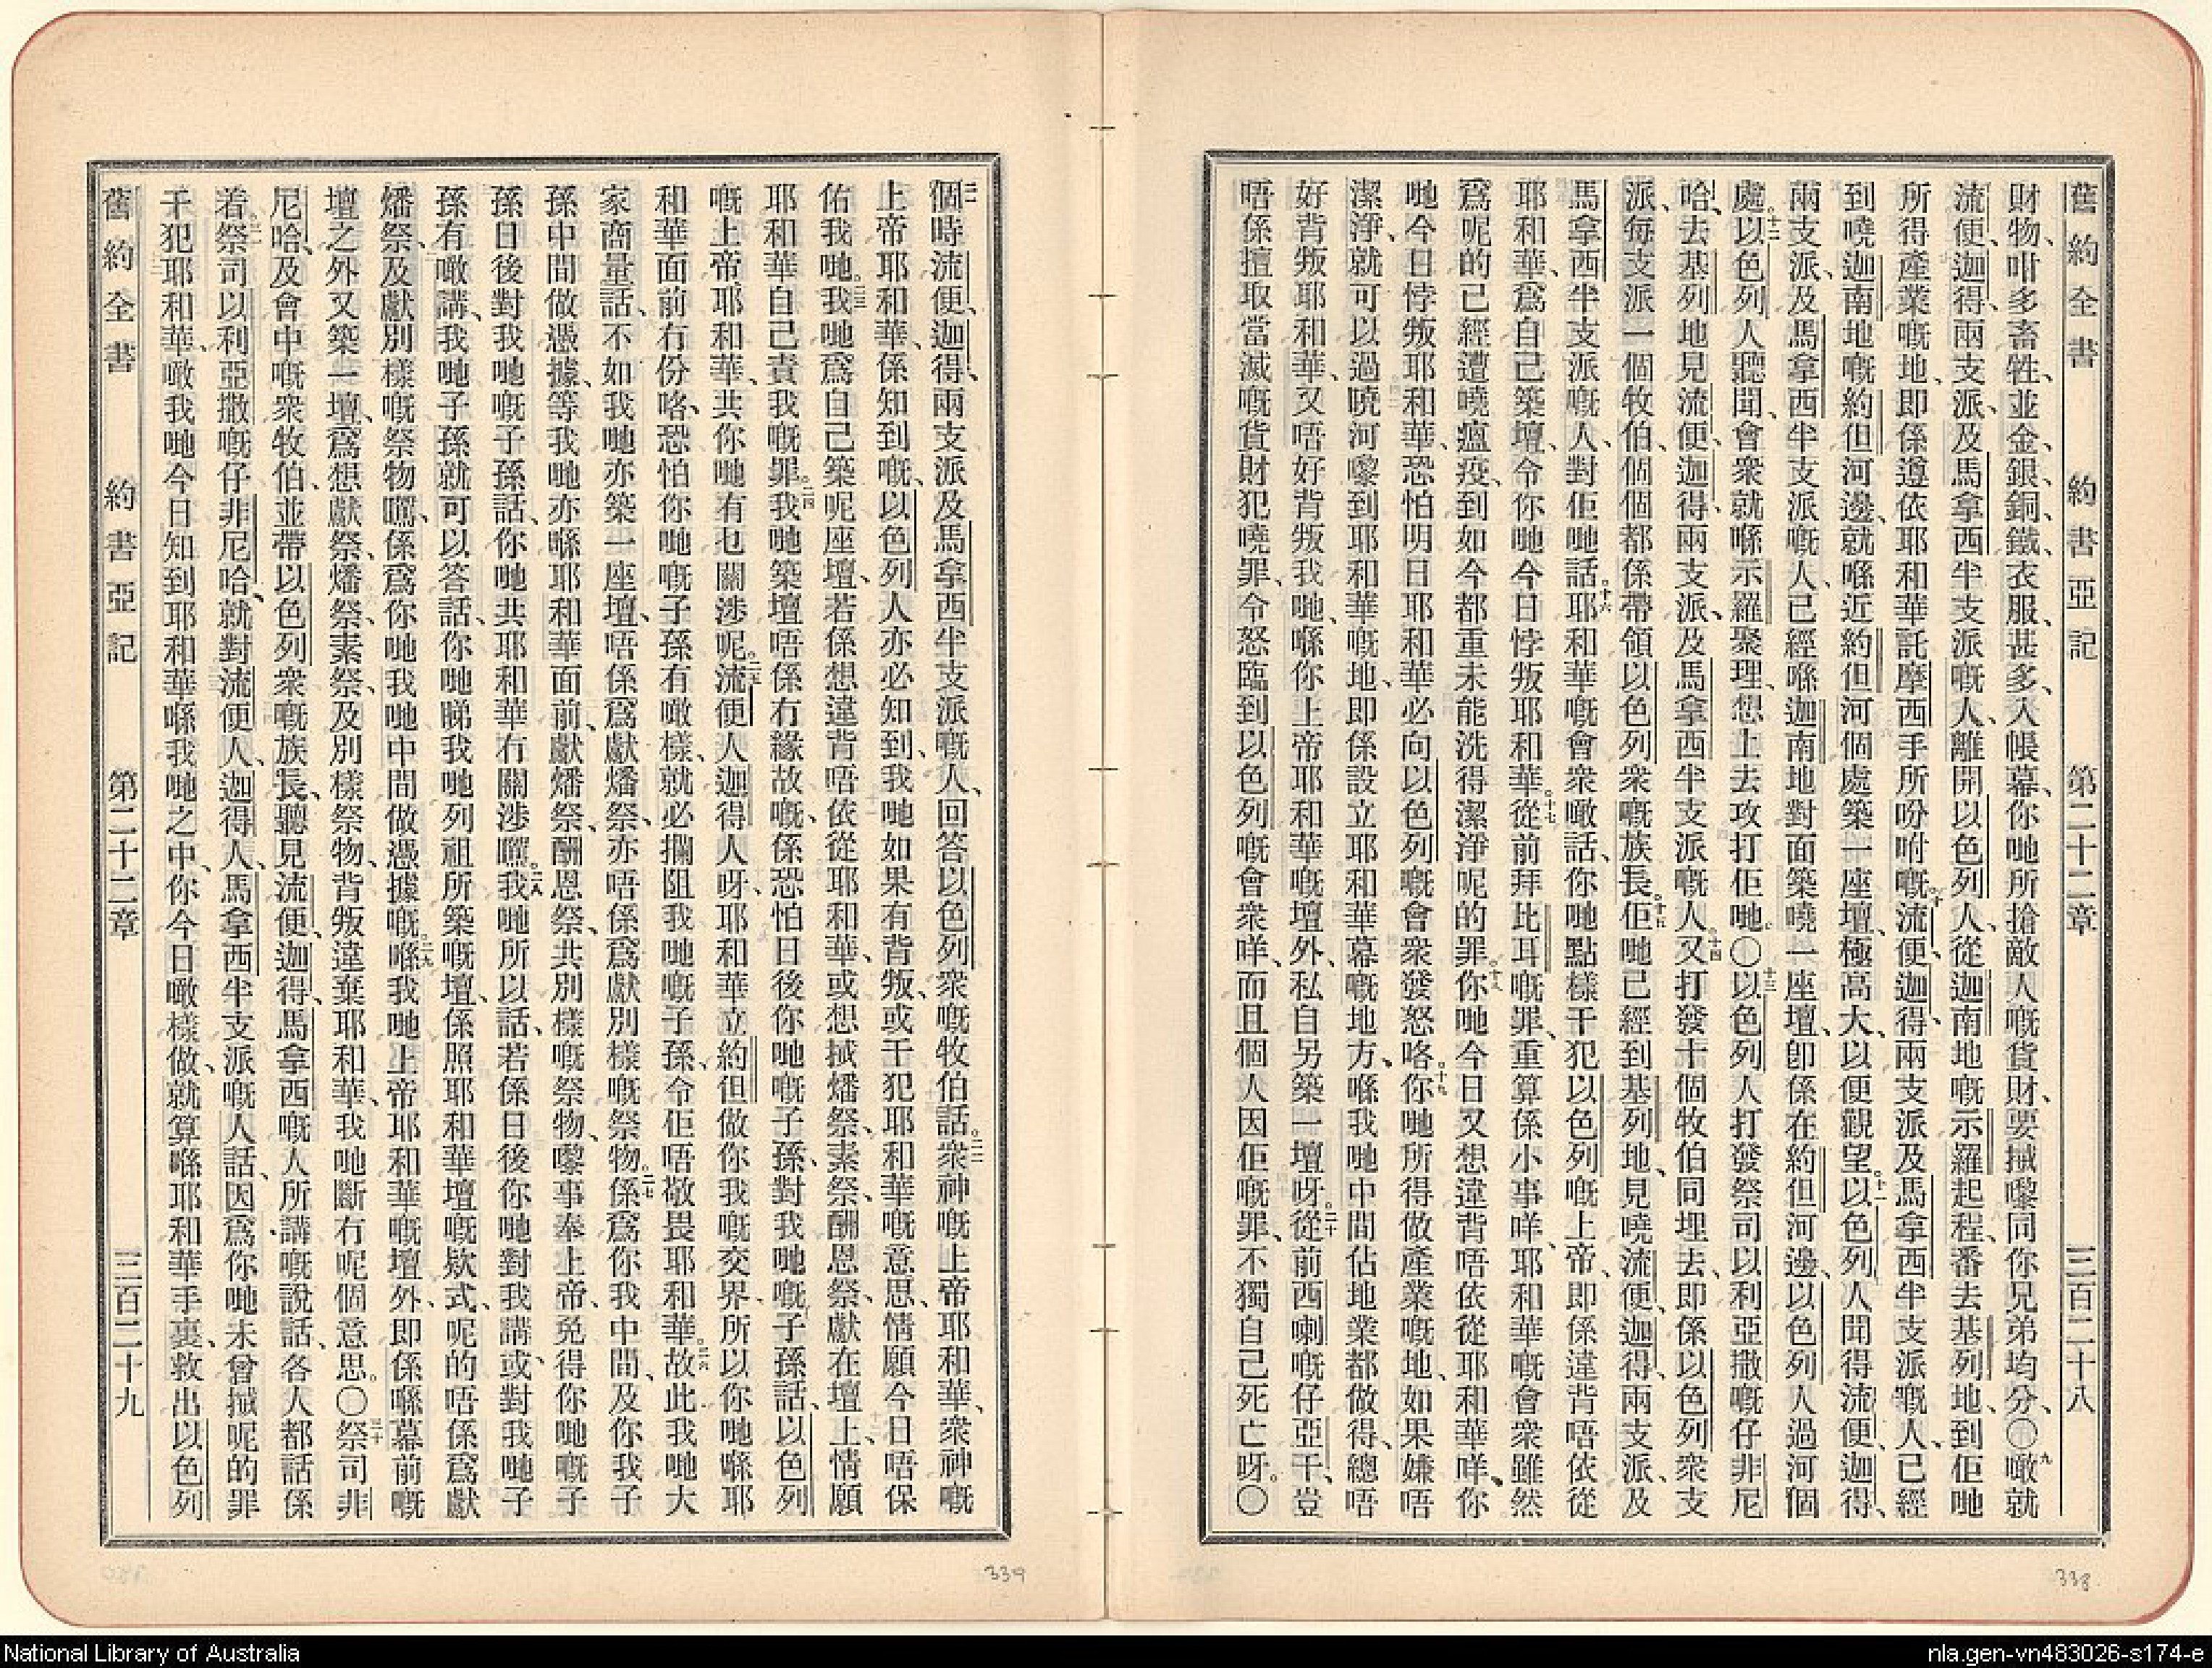 舊約全書　約書亞記　第二十二章　三百二十八
財物、咁多畜牲、並金、銀、銅、鐵、衣服、甚多、入帳幕、你哋所搶敵人嘅貨財、要搣嚟同你兄弟均分、〇九噉就
流便、迦得、兩支派、及馬拿西半支派嘅人、離開以色列人、從迦南地嘅示羅起程、番去基列地、到佢哋
所得產業嘅地、即係遵依耶和華託摩西手所吩咐嘅。十流便、迦得、兩支派、及馬拿西半支派嘅人、已經
到嘵迦南地嘅約但河邊、就喺近約但河個處築一座壇、極高大、以便觀望。十一以色列人聞得流便、迦得、
兩支派、及馬拿西半支派嘅人、已經喺迦南地對面築嘵一座壇、卽係在約但河邊、以色列人過河個
處。十二以色列人聽聞、會衆就喺示羅聚理、想上去攻打佢哋。〇十三以色列人打發祭司以利亞撒嘅仔非尼
哈、去基列地見流便、迦得、兩支派、及馬拿西半支派嘅人。十四又打發十個牧伯同埋去、即係以色列衆支
派、每支派一個牧伯、個個都係帶領以色列衆嘅族長。十五佢哋已經到基列地、見嘵流便、迦得、兩支派、及
馬拿西半支派嘅人、對佢哋話。十六耶和華嘅會衆噉話、你哋點樣干犯以色列嘅上帝、即係違背唔依從
耶和華、爲自己築壇、令你哋今日悖叛耶和華。十七從前拜比耳嘅罪、重算係小事咩、耶和華嘅會衆雖然
爲呢的已經遭嘵瘟疫、到如今都重未能洗得潔淨呢的罪。十八你哋今日又想違背唔依從耶和華咩、你
哋今日悖叛耶和華、恐怕明日耶和華必向以色列嘅會衆發怒咯。十九你哋所得做產業嘅地、如果嫌唔
潔淨、就可以過嘵河嚟到耶和華嘅地、即係設立耶和華幕嘅地方、喺我哋中間佔地業都做得、總唔
好背叛耶和華、又唔好背叛我哋、喺你上帝耶和華嘅壇外、私自另築一壇呀。二十從前西喇嘅仔亞干、豈
唔係擅取當滅嘅貨財犯嘵罪、令怒臨到以色列嘅會衆咩、而且個人因佢嘅罪、不獨自己死亡呀。〇
二一個時流便、迦得、兩支派、及馬拿西半支派嘅人、回答以色列衆嘅牧伯話。二二衆神嘅上帝耶和華、衆神嘅
上帝耶和華、係知到嘅、以色列人亦必知到、我哋如果有背叛、或干犯耶和華嘅意思、情願今日唔保
佑我哋。二三我哋爲自己築呢座壇、若係想違背唔依從耶和華、或想搣燔祭、素祭、酬恩祭、獻在壇上、情願
耶和華自己責我嘅罪。二四我哋築壇唔係冇緣故嘅、係恐怕日後你哋嘅子孫、對我哋嘅子孫話、以色列
嘅上帝耶和華、共你哋有乜關涉呢。二五流便人、迦得人呀、耶和華立約但做你我嘅交界、所以你哋喺耶
和華面前冇份咯、恐怕你哋嘅子孫有噉樣、就必攔阻我哋嘅子孫、令佢唔敬畏耶和華。二六故此我哋大
家商量話、不如我哋亦築一座壇、唔係爲獻燔祭、亦唔係爲獻別樣嘅祭物。二七係爲你我中間、及你我子
孫中間做憑據、等我哋亦喺耶和華面前、獻燔祭、酬恩祭、共別樣嘅祭物、嚟事奉上帝、免得你哋嘅子
孫日後對我哋嘅子孫話、你哋共耶和華冇關涉嚹。二八我哋所以話、若係日後你哋對我講、或對我哋子
孫有噉講、我哋子孫就可以答話、你哋睇我哋列祖所築嘅壇、係照耶和華壇嘅欵式、呢的唔係爲獻
燔祭、及獻別樣嘅祭物嚹、係爲你哋我哋中間做憑據嘅。二九喺我哋上帝耶和華嘅壇外、即係喺幕前嘅
壇之外、又築一壇、爲想獻祭、燔祭、素祭、及別樣祭物、背叛違棄耶和華、我哋斷冇呢個意思。〇三十祭司非
尼哈、及會中嘅衆牧伯、並帶以色列衆嘅族長、聽見流便、迦得、馬拿西嘅人所講嘅說話、各人都話係
着。三一祭司以利亞撒嘅仔非尼哈、就對流便人、迦得人、馬拿西半支派嘅人話、因爲你哋未曾搣呢的罪
干犯耶和華、噉我哋今日知到耶和華喺我哋之中、你今日噉樣做、就算喺耶和華手裏、救出以色列
舊約全書　約書亞記　第二十二章　三百二十九
338
339
National Library of Australia
nla.gen-vn483026-s174-e